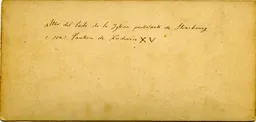 del lado de la Iglesia protestante de Strasbourg
o sea: Panteon de Ludovico XV